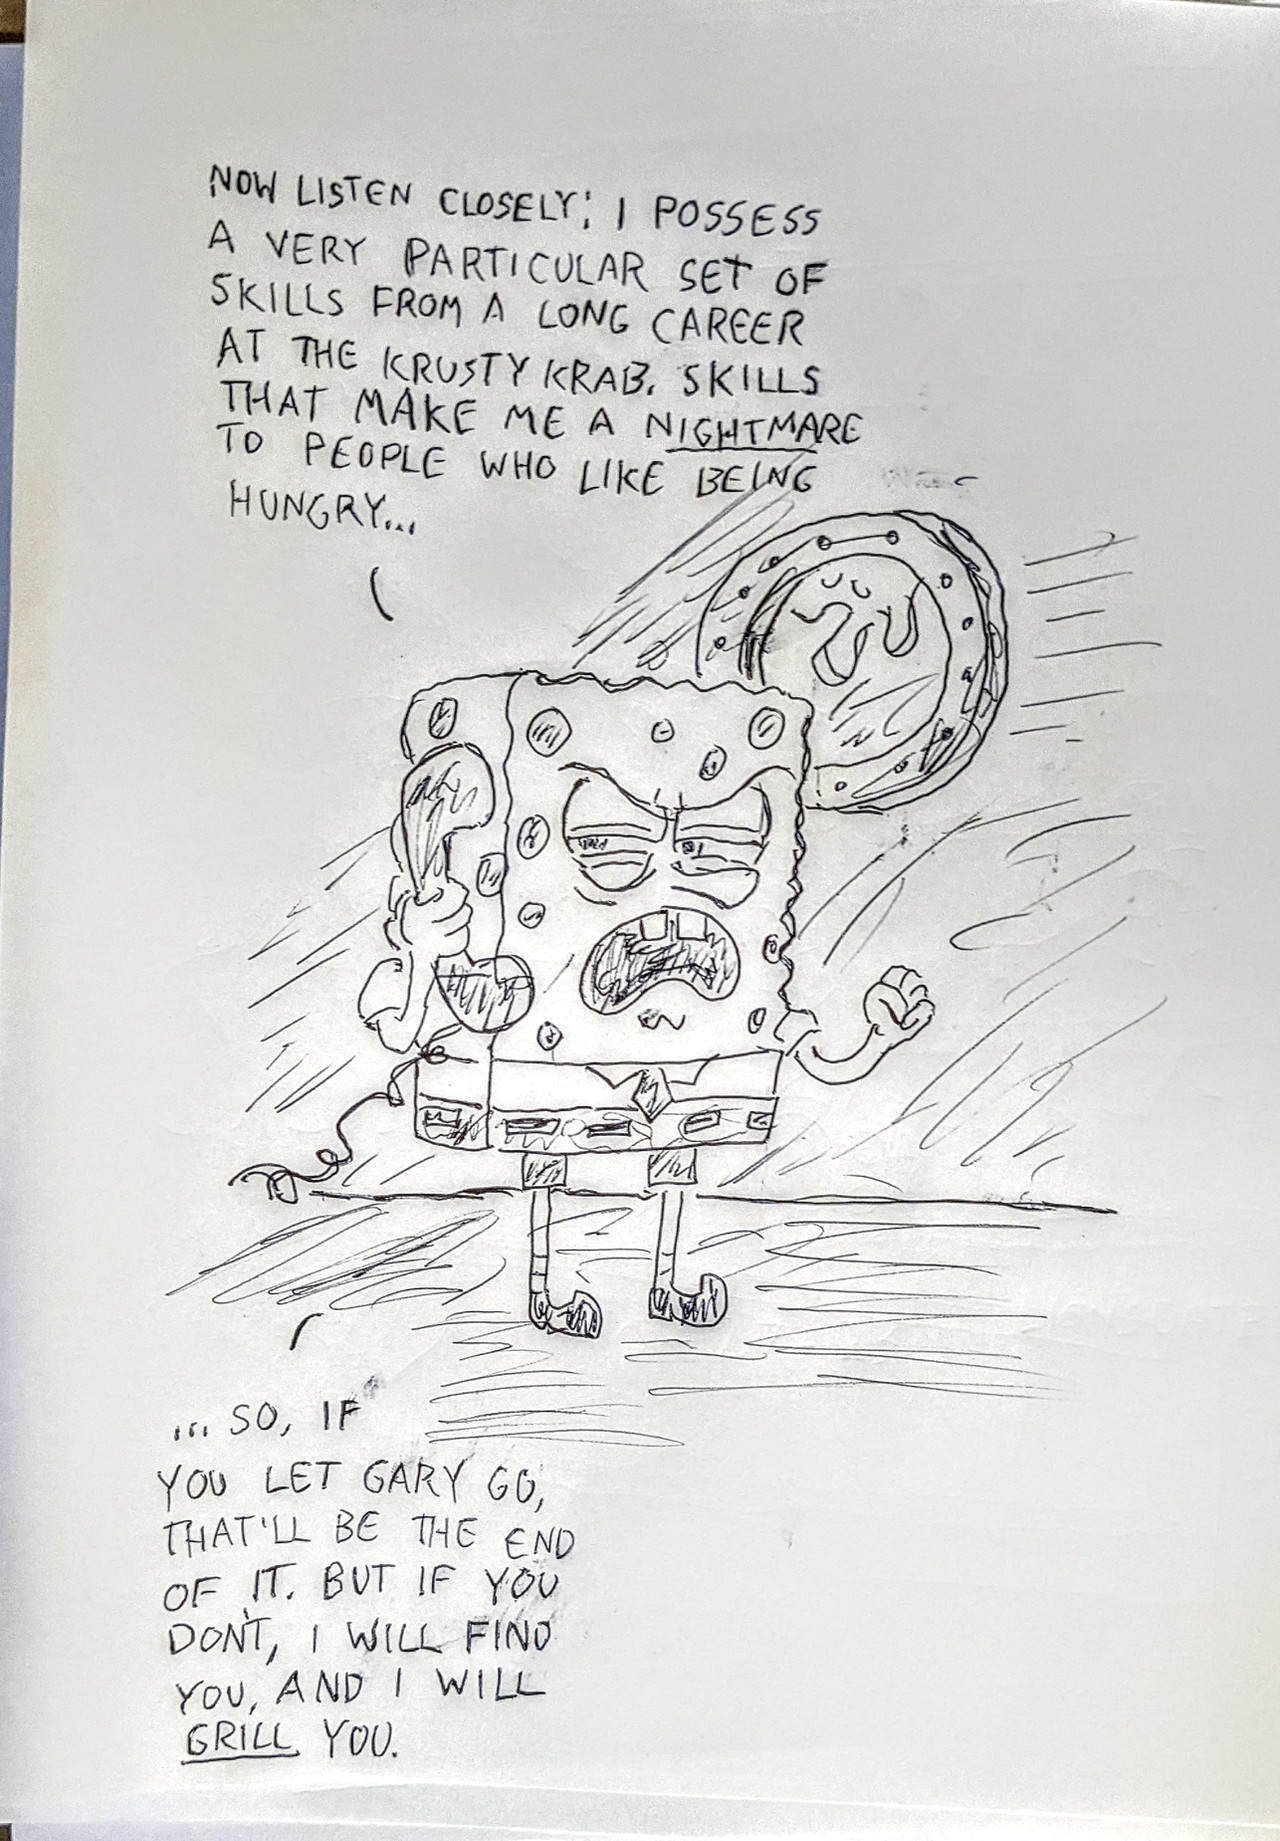 NOW LISTEN CLOSELY; I POSSESS
A VERY PARTICULAR SET OF
SKILLS FROM A LONG CAREER
AT THE KRUSTY KRAB. SKILLS
THAT MAKE ME A NIGHTMARE
TO PEOPLE WHO LIKE BEING
HUNGRY...
...SO, IF
YOU LET GARY GO,
THAT'LL BE THE END
OF IT. BUT IF YOU
DON'T, I WILL FIND
YOU, AND I WILL
GRILL YOU.